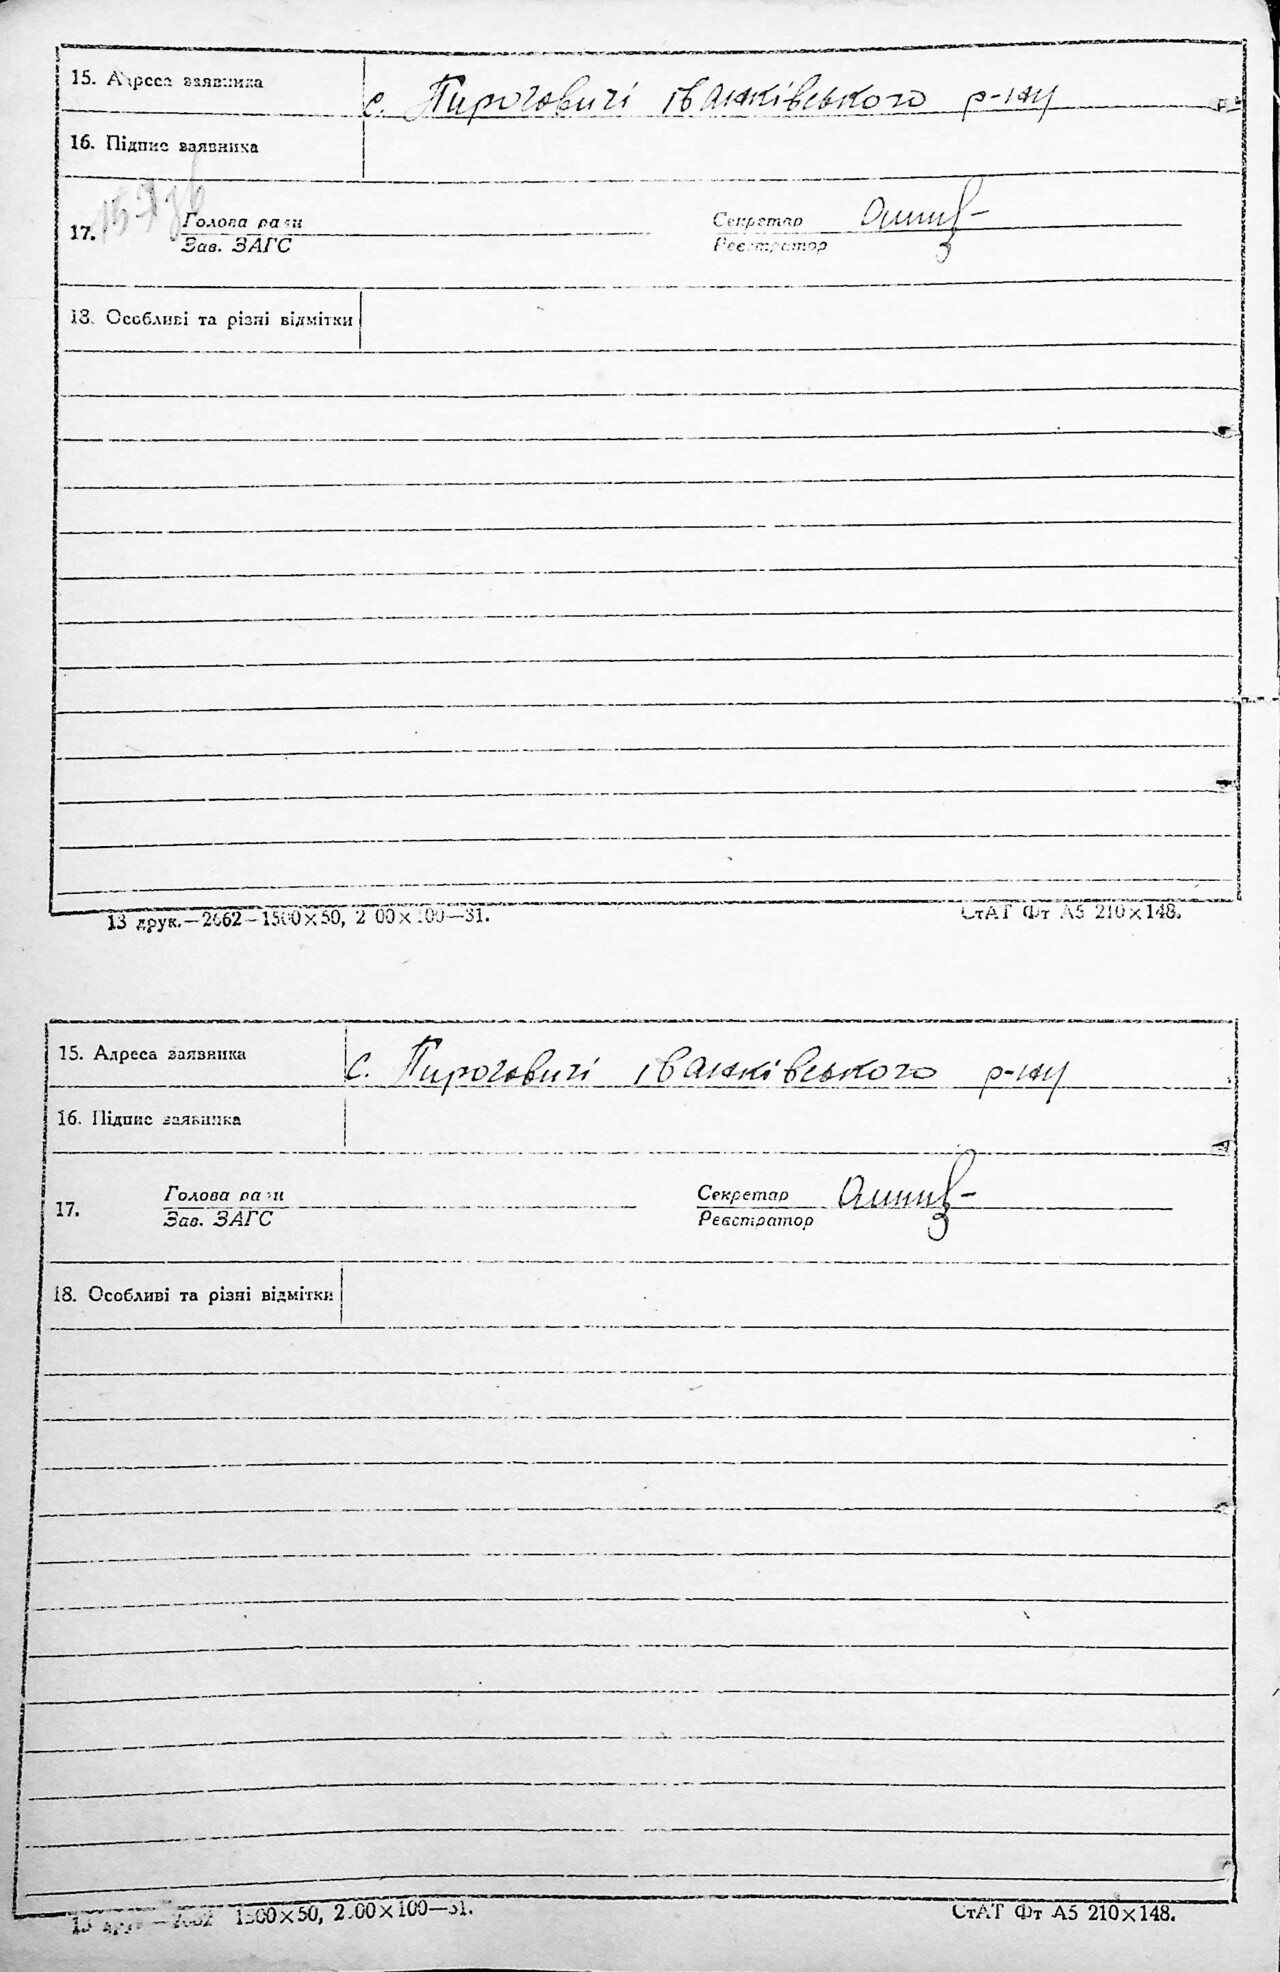 15. Адреса заявника с. Пироговичі іванківського р-ну
16. Підпис заявника
17. Голова ради Секретар
Зав. ЗАГС Реєстратор
18. Особливі та різні відмітки
13 друк.—2662—1500×50, 2 00×100—31. СтАТ Фт А5 210×148.
15. Адреса заявника с. Пироговичі іванківського р-ну
16. Підпис заявника
17. Голова ради Секретар
Зав. ЗАГС Реєстратор
18. Особливі та різні відмітки
13 друк.—2662 1500×50, 2.00×100—31. СтАТ Фт А5 210×148.